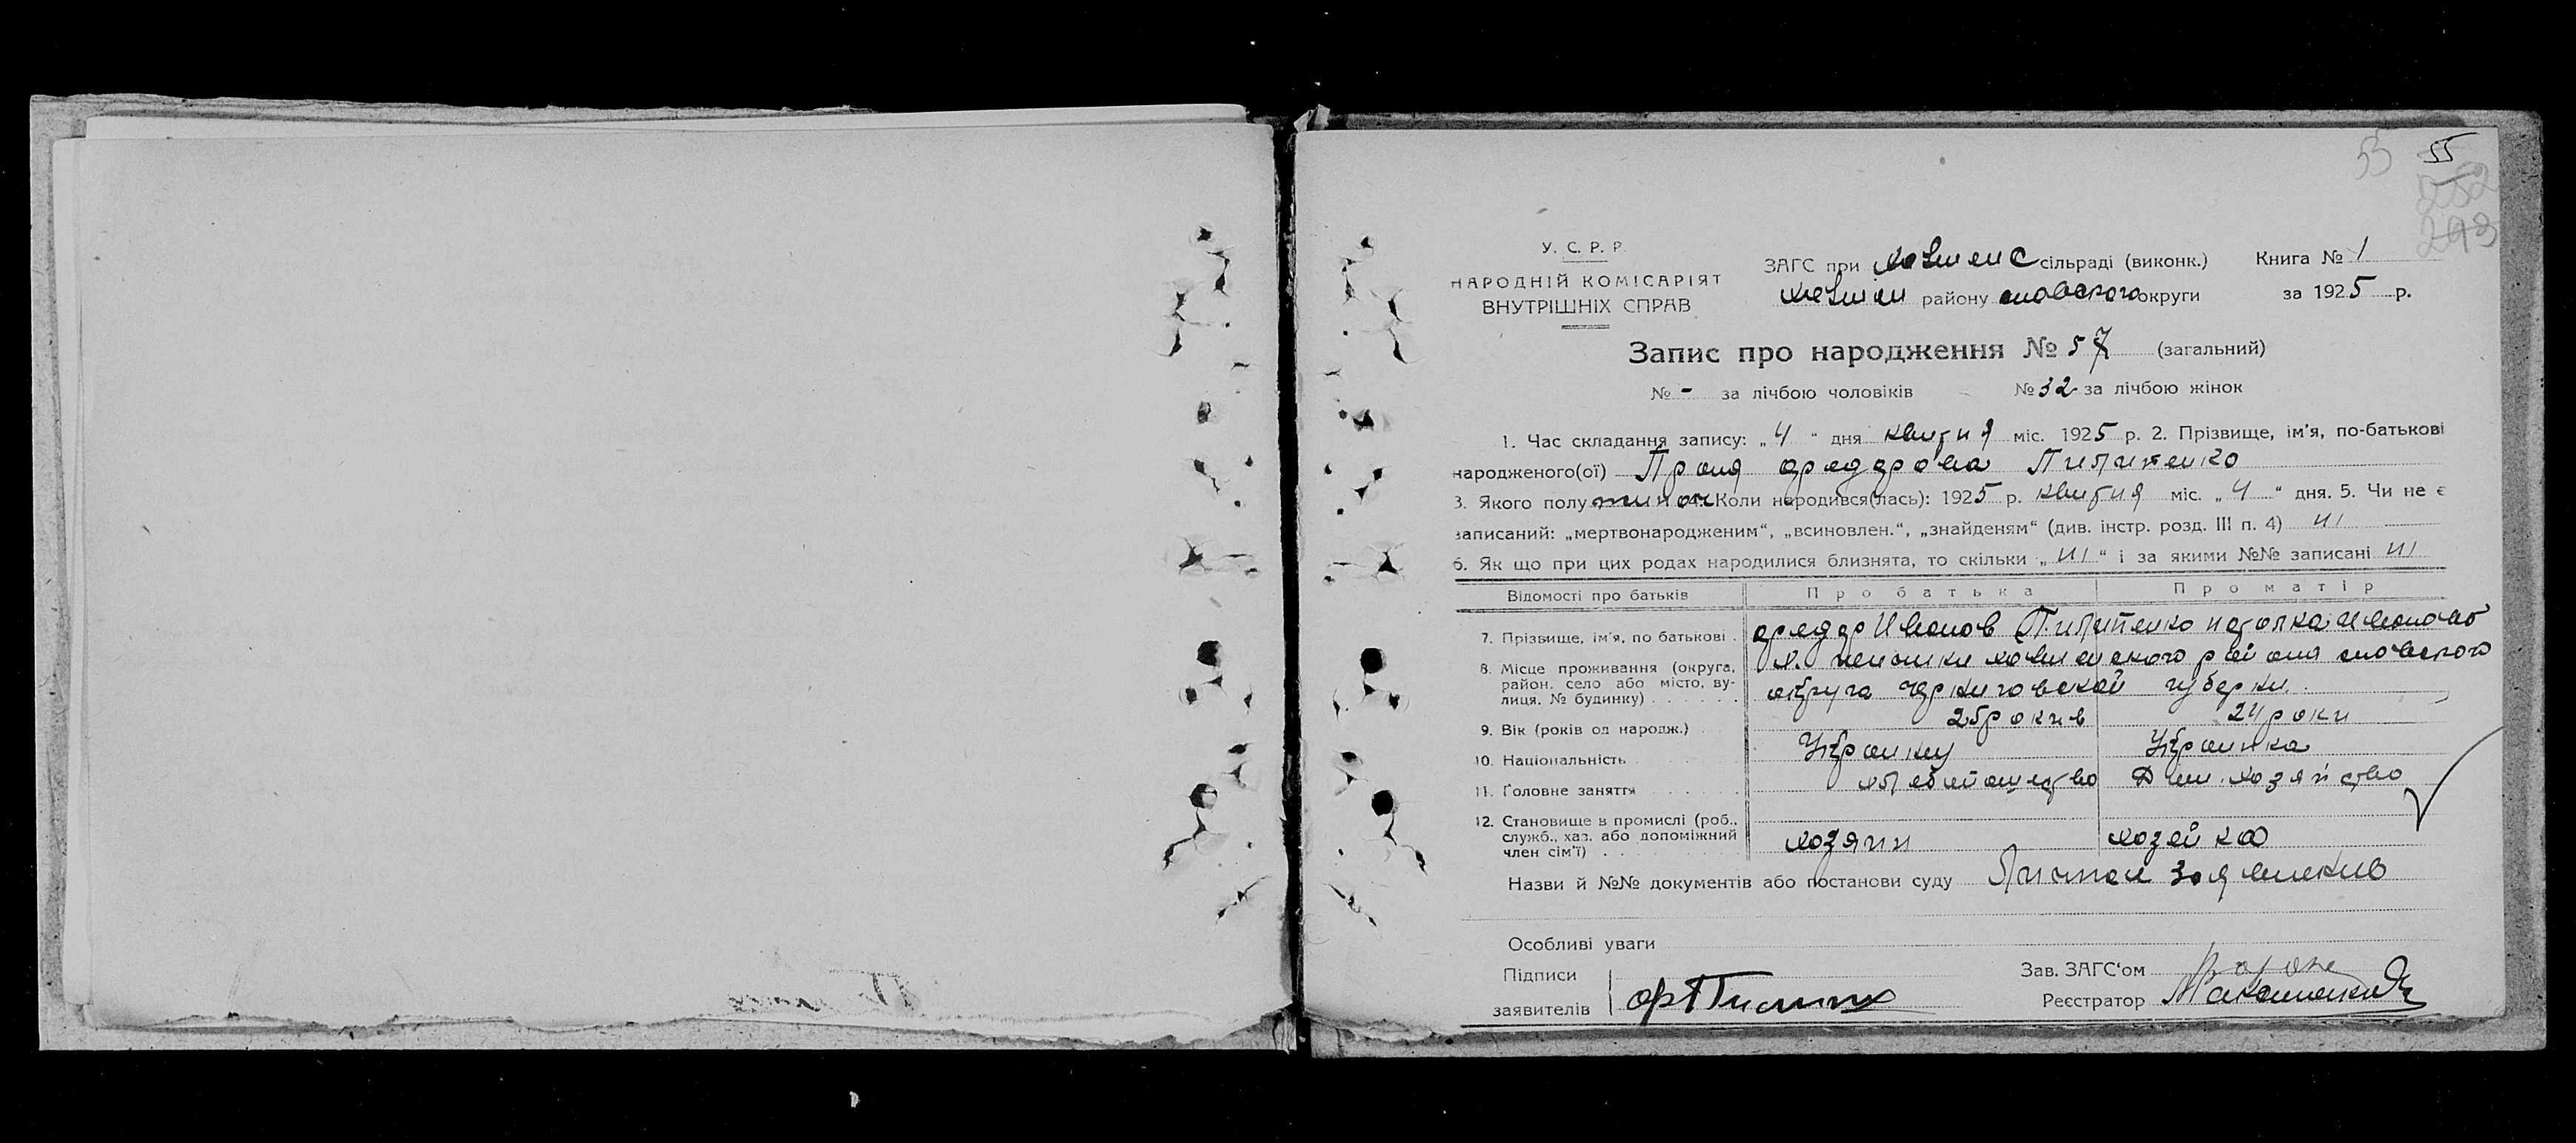 53 55
252
243
У. С. Р. Р.
НАРОДНІЙ КОМІСАРІЯТ
ВНУТРІШНІХ СПРАВ
ЗАГС при Холменс сільраді (виконк.) Книга № 1
Холмен району сновского округи за 1925 р.
Запис про народження № 57 (загальний)
№ - за лічбою чоловіків № 32 за лічбою жінок
1. Час складання запису: „4“ дня квитня міс. 1925 р. 2. Прізвище, ім’я, по-батькові
народженого(ої) федорова Пилипенко
3. Якого полу жиноч Коли народився(лась): 1925 р. квитня міс. „4“ дня. 5. Чи не є
записаний: „мертвонародженим“, „всиновлен.“, „знайденям“ (див. інстр. розд. III п. 4) ні
6. Як що при цих родах народилися близнята, то скільки „ні“ і за якими №№ записані ні
Відомості про батьків Про батька Про матір
7. Прізвище, ім’я, по батькові федор Иванов Пилипенко
8. Місце проживання (округа, район, село або місто, вулиця, № будинку) холменского района сновского
округа черниговской губерни.
9. Вік (років од народж.) 25 рокив 24 роки
10. Національність Украинка
11. Головне заняття хлебопашество Дом. хозяйство
12. Становище в промислі (роб., служб., хаз. або допоміжний член сім’ї) хозяин хозяйка
Назви й №№ документів або постанови суду
Особливі уваги
Підписи заявителів
Зав. ЗАГС‘ом
Реєстратор